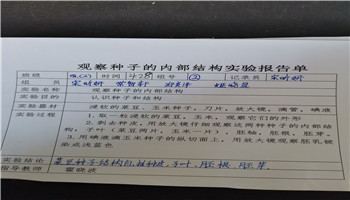 观察种子的内部结构实验报告单
班级 时间 4.28 组号 ② 记录员 宋昕妍
组员 宋昕妍
实验名称 观察种子的内部结构
实验目的 认识种子和结构
实验器材 浸软的菜豆、玉米种子，刀片，放大镜，滴管，碘液
实验过程 1.取一粒浸软的菜豆、玉米，观察它们的外形
2.剥去种皮，用放大镜仔细观察这两种种子的内部结
构：子叶（菜豆两片，玉米一片），胚轴，胚根，胚芽，
3.用碘液滴玉米种子的纵切面上，用放大镜观察胚乳被
染成浅蓝色
实验结论 菜豆种子结构包括种皮、子叶、胚根、胚芽
指导教师 霍晓波